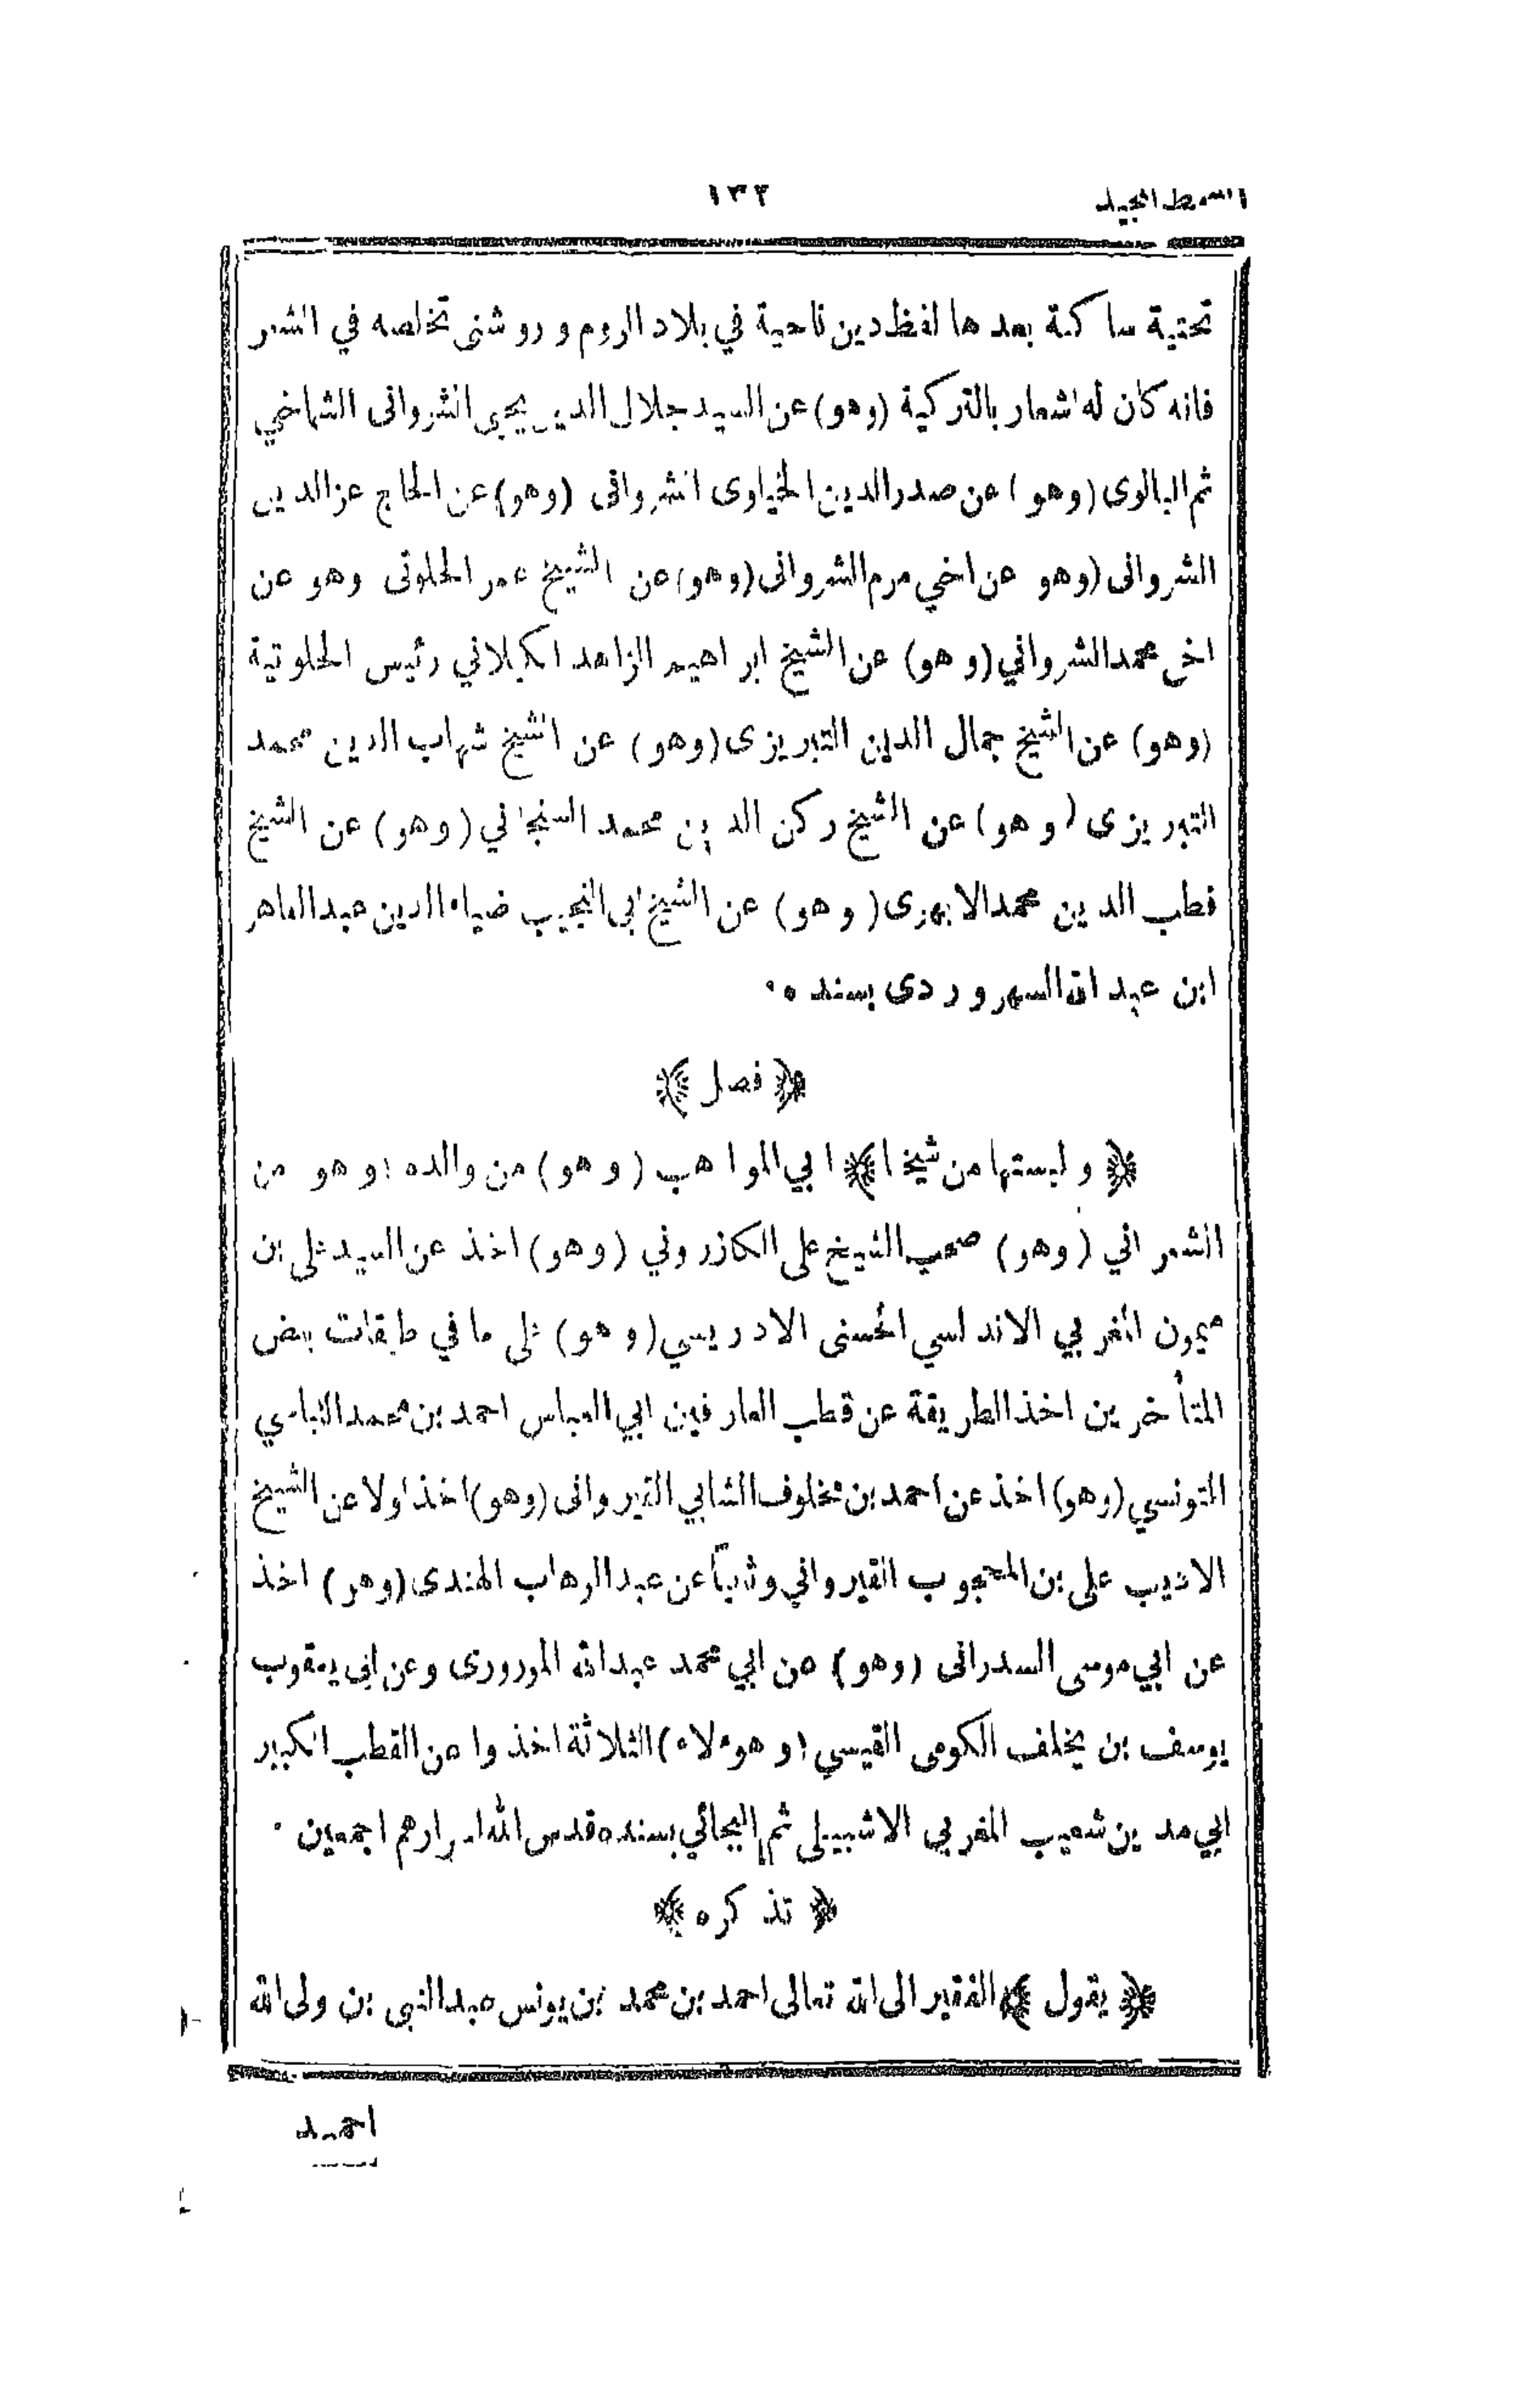 السمط المجيد
١٣٢
تحتية ساكنة بعدها لفظ دين ناحية في بلاد الروم وروشنى تخلصه في الشعر
فانه كان له اشعار بالتركية (وهو) عن السيد جلال الدين يحيى الشروانى الشماخي
ثم البالوى (وهو) عن صدر الدين الخياوى الشروانى (وهو) عن الحاج عز الدين
الشروانى (وهو عن اخي مرم الشروانى (وهو) عن الشيخ عمر الخلوتى وهو عن
اخى محمد الشرواني (وهو) عن الشيخ ابراهيم الزاهد الكيلاني رئيس الخلوتية
(وهو) عن الشيخ جمال الدين التبريزى (وهو) عن الشيخ شهاب الدين محمد
التبريزى (وهو) عن الشيخ ركن الدين محمد السنجاني (وهو) عن الشيخ
قطب الدين محمد الابهرى (وهو) عن الشيخ ابى النجيب ضياء الدين عبد القاهر
ابن عبد الله السهروردى بسنده ٠
﴿ فصل ﴾
﴿ ولبستها من شيخنا ﴾ ابي المواهب (وهو) من والده (وهو من
الشعراني (وهو) صحب الشيخ على الكازروني (وهو) اخذ عن السيد على بن
ميمون المغربي الاندلسي الحسنى الادريسي (وهو) على ما في طبقات بعض
المتأخرين اخذ الطريقة عن قطب العارفين ابي العباس احمد بن محمد التباسي
التونسي (وهو) اخذ عن احمد بن مخلوف الشابي القيروانى (وهو) اخذ اولا عن الشيخ
الاديب على بن المحجوب القيرواني وثانياً عن عبد الوهاب الهندى (وهو) اخذ
عن ابي موسى السدرانى (وهو) عن ابي محمد عبد الله المورورى وعن ابى يعقوب
يوسف بن يخلف الكومى القيسي (وهولاء) الثلاثة اخذوا عن القطب الكبير
ابي مدين شعيب المغربي الاشبيلى ثم البجائي بسنده قدس الله اسرارهم اجمعين ٠
﴿ تذكره ﴾
﴿ يقول ﴾ الفقير الى الله تعالى احمد بن محمد بن يونس عبد النبى بن ولى الله
احمد